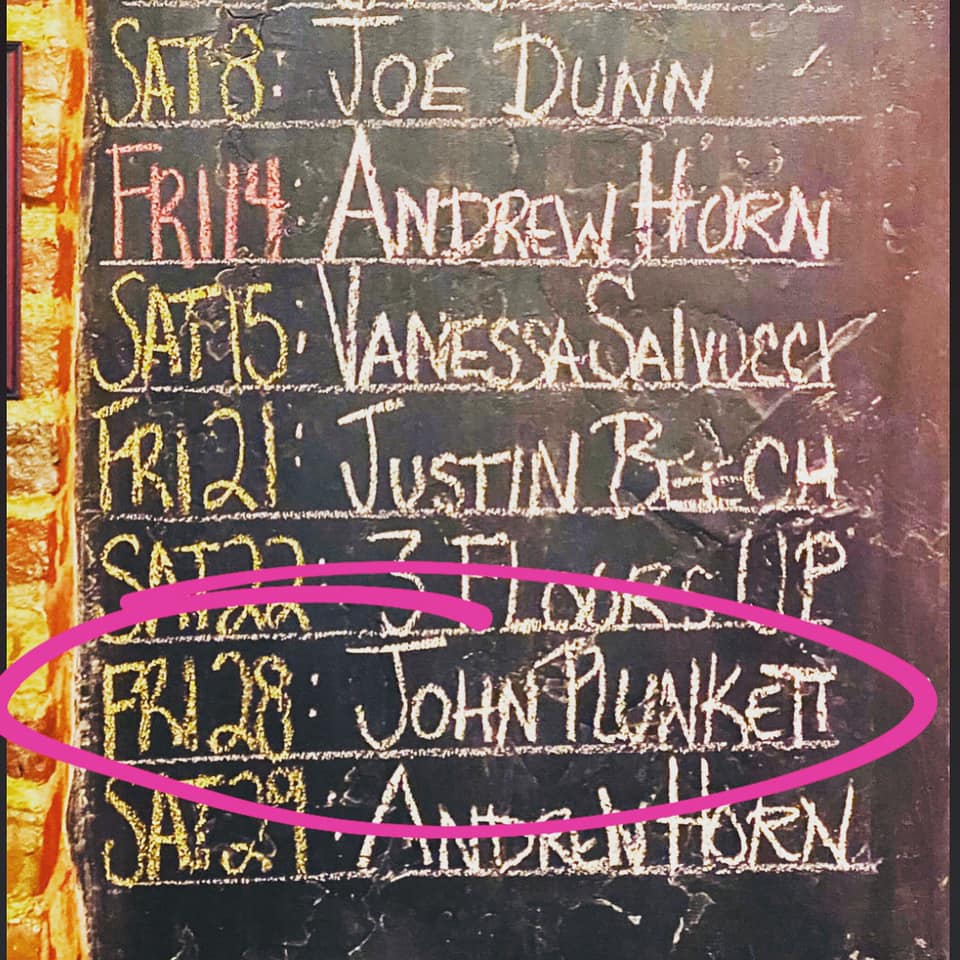 SAT 8: JOE DUNN
FRI 14: ANDREW HORN
SAT 15: VANESSA SALVUCCI
FRI 21: JUSTIN BEECH
SAT 22: 3 FLOORS UP
FRI 28: JOHN PLUNKETT
SAT 29: ANDREW HORN